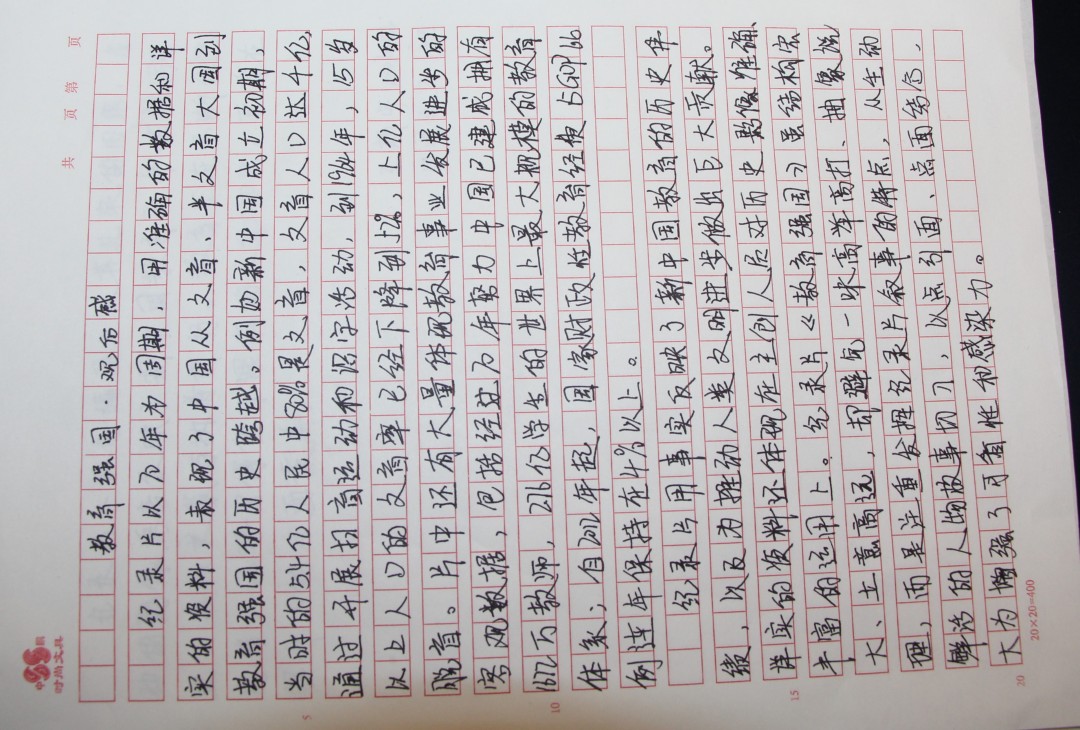 共 页 第 页
教育强国·观后感
纪录片以70年为周期,用准确的数据和详
实的资料,表现了中国从文盲、半文盲大国到
教育强国的历史跨越。例如新中国成立初期,
当时的5.4亿人民中80%是文盲,文盲人口达4亿,
通过开展扫盲运动和识字活动,到1964年,15岁
以上人口的文盲率已经下降到52%,上亿人口的
脱盲。片中还有大量体现教育事业发展进步的
客观数据,包括经过70年努力中国已建成拥有
1672万教师,2.76亿学生的世界上最大规模的教育
体系;自2012年起,国家财政性教育经费占GDP比
例连年保持在4%以上。
纪录片用事实反映了新中国教育的历史伟
绩,以及为推动人类文明进步做出巨大贡献。
详实的资料还体现在主创人员对历史影像准确、
丰富的运用上。纪录片《教育强国》虽结构宏
大、立意高远,却避免一味高举高打、抽象说
理,而是注重发挥纪录片叙事的特点,从生动
鲜活的人物故事切入,以点引面、点面结合,
大为增强了可看性和感染力。
时尚文具
5
10
15
20
20×20=400